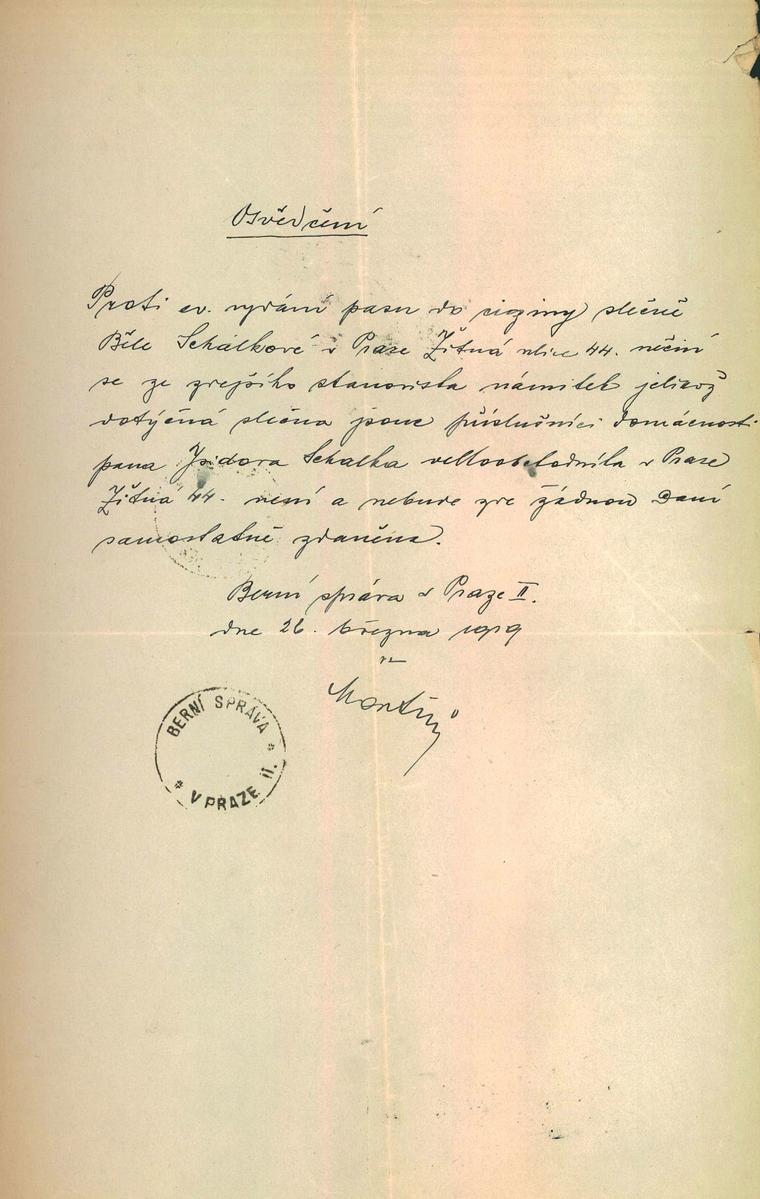 Osvědčení
Proti ev. vydání pasu do ciziny slečně
Běle Schálkové v Praze Žitná ulice 44. nečiní
se ze zdejšího stanoviska námitek jelikož
dotyčná slečna jsouc příslušnicí domácnosti
pana Isidora Schalka velkoobchodníka v Praze
Žitná 44. není a nebude zde žádnou daní
samostatně zdaněna.
Berní správa v Praze II.
dne 26. března 1919
BERNÍ SPRÁVA
V PRAZE II.